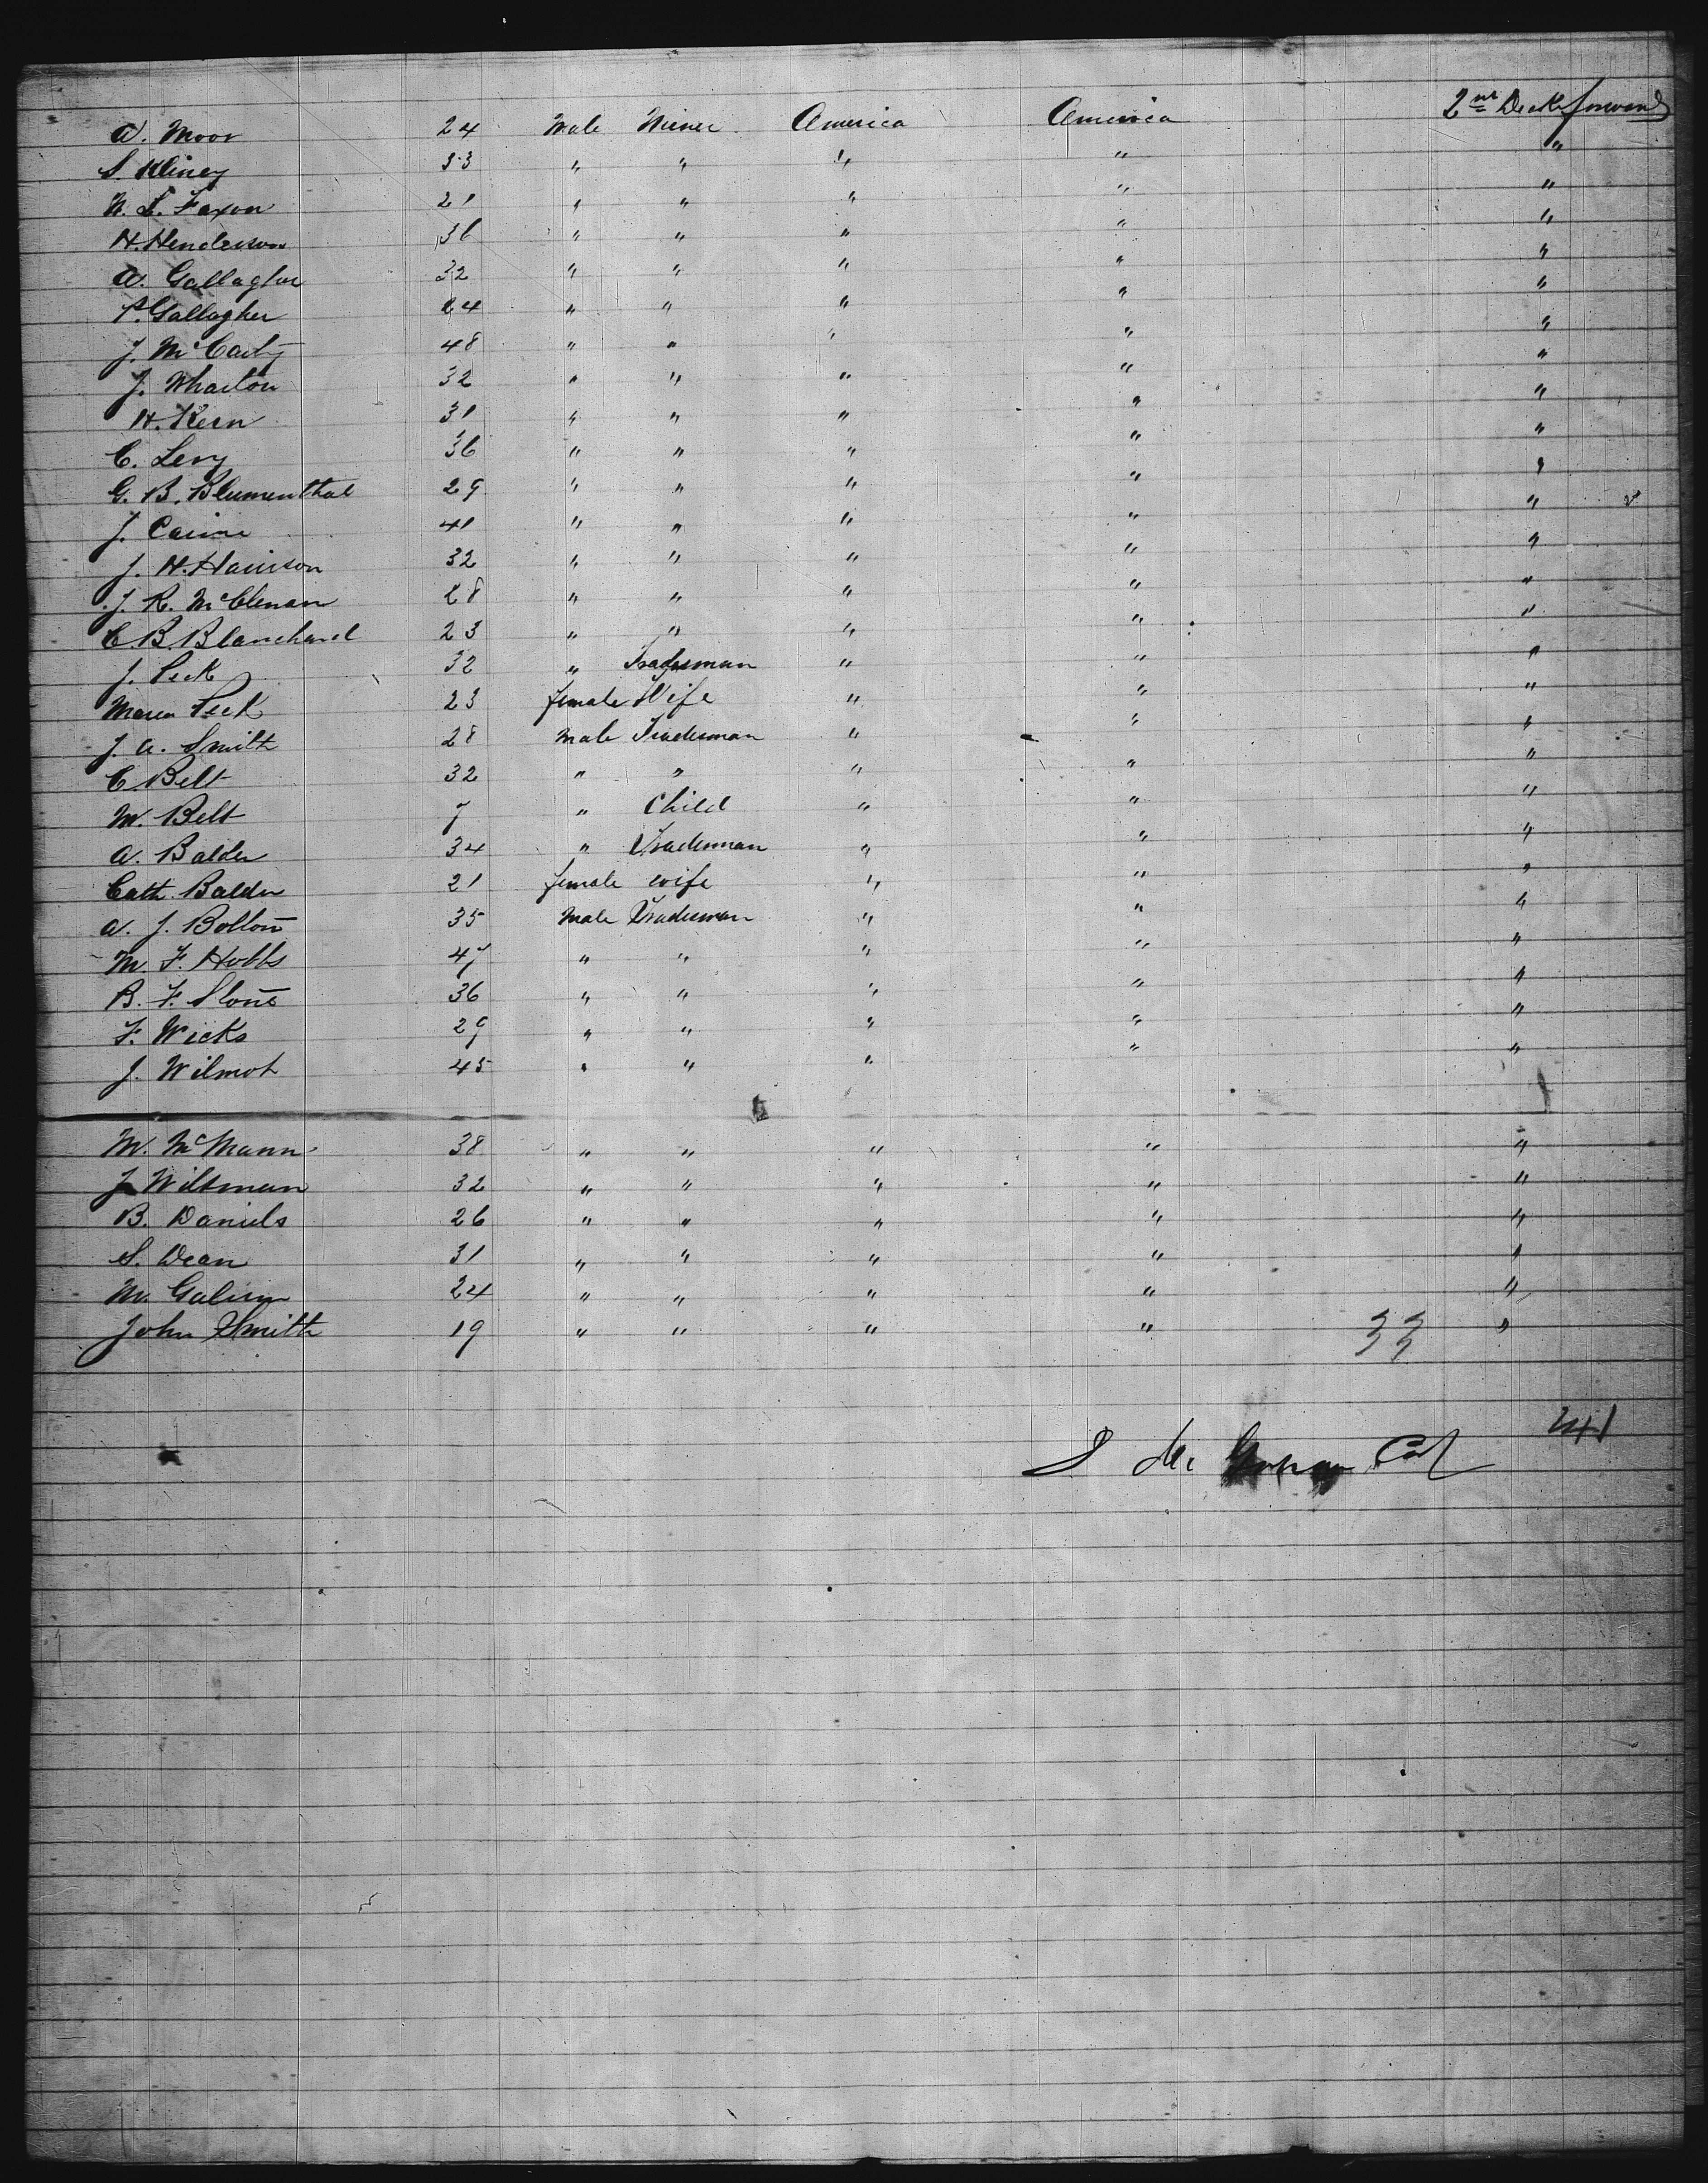 A. Moor 24 Male Miner America America 2nd Deck forward
S. Kliney 33 " " " " "
N. L. Faxon 21 " " " " "
H. Henderson 36 " " " " "
A. Gallagher 32 " " " " "
P. Gallagher 24 " " " " "
J. McCarty 48 " " " " "
J. Wharton 32 " " " " "
H. Kern 31 " " " " "
C. Levy 36 " " " " "
G. B. Blumenthal 29 " " " " "
J. 41 " " " " "
J. H. Harrison 32 " " " " "
J. R. McClenan 28 " " " " "
C. B. Blanchard 23 " " " " "
J. Peck 32 " Tradesman " " "
Maria Peck 23 female Wife " " "
J. A. Smith 28 Male Tradesman " " "
C Belt 32 " " " " "
M. Belt 7 " Child " " "
A. Balder 34 " Tradesman " " "
Cath. Balder 21 female wife " " "
A. J. Bolton 35 Male Tradesman " " "
M. F. Hobbs 47 " " " " "
B. F. Slone 36 " " " " "
F. Wicks 29 " " " " "
J. Wilmot 45 " " " " "
M. McMann 38 " " " " "
J Wiltman 32 " " " " "
B. Daniels 26 " " " " "
S. Dean 31 " " " " "
M. 24 " " " " "
John Smith 19 " " " " 33 "
241